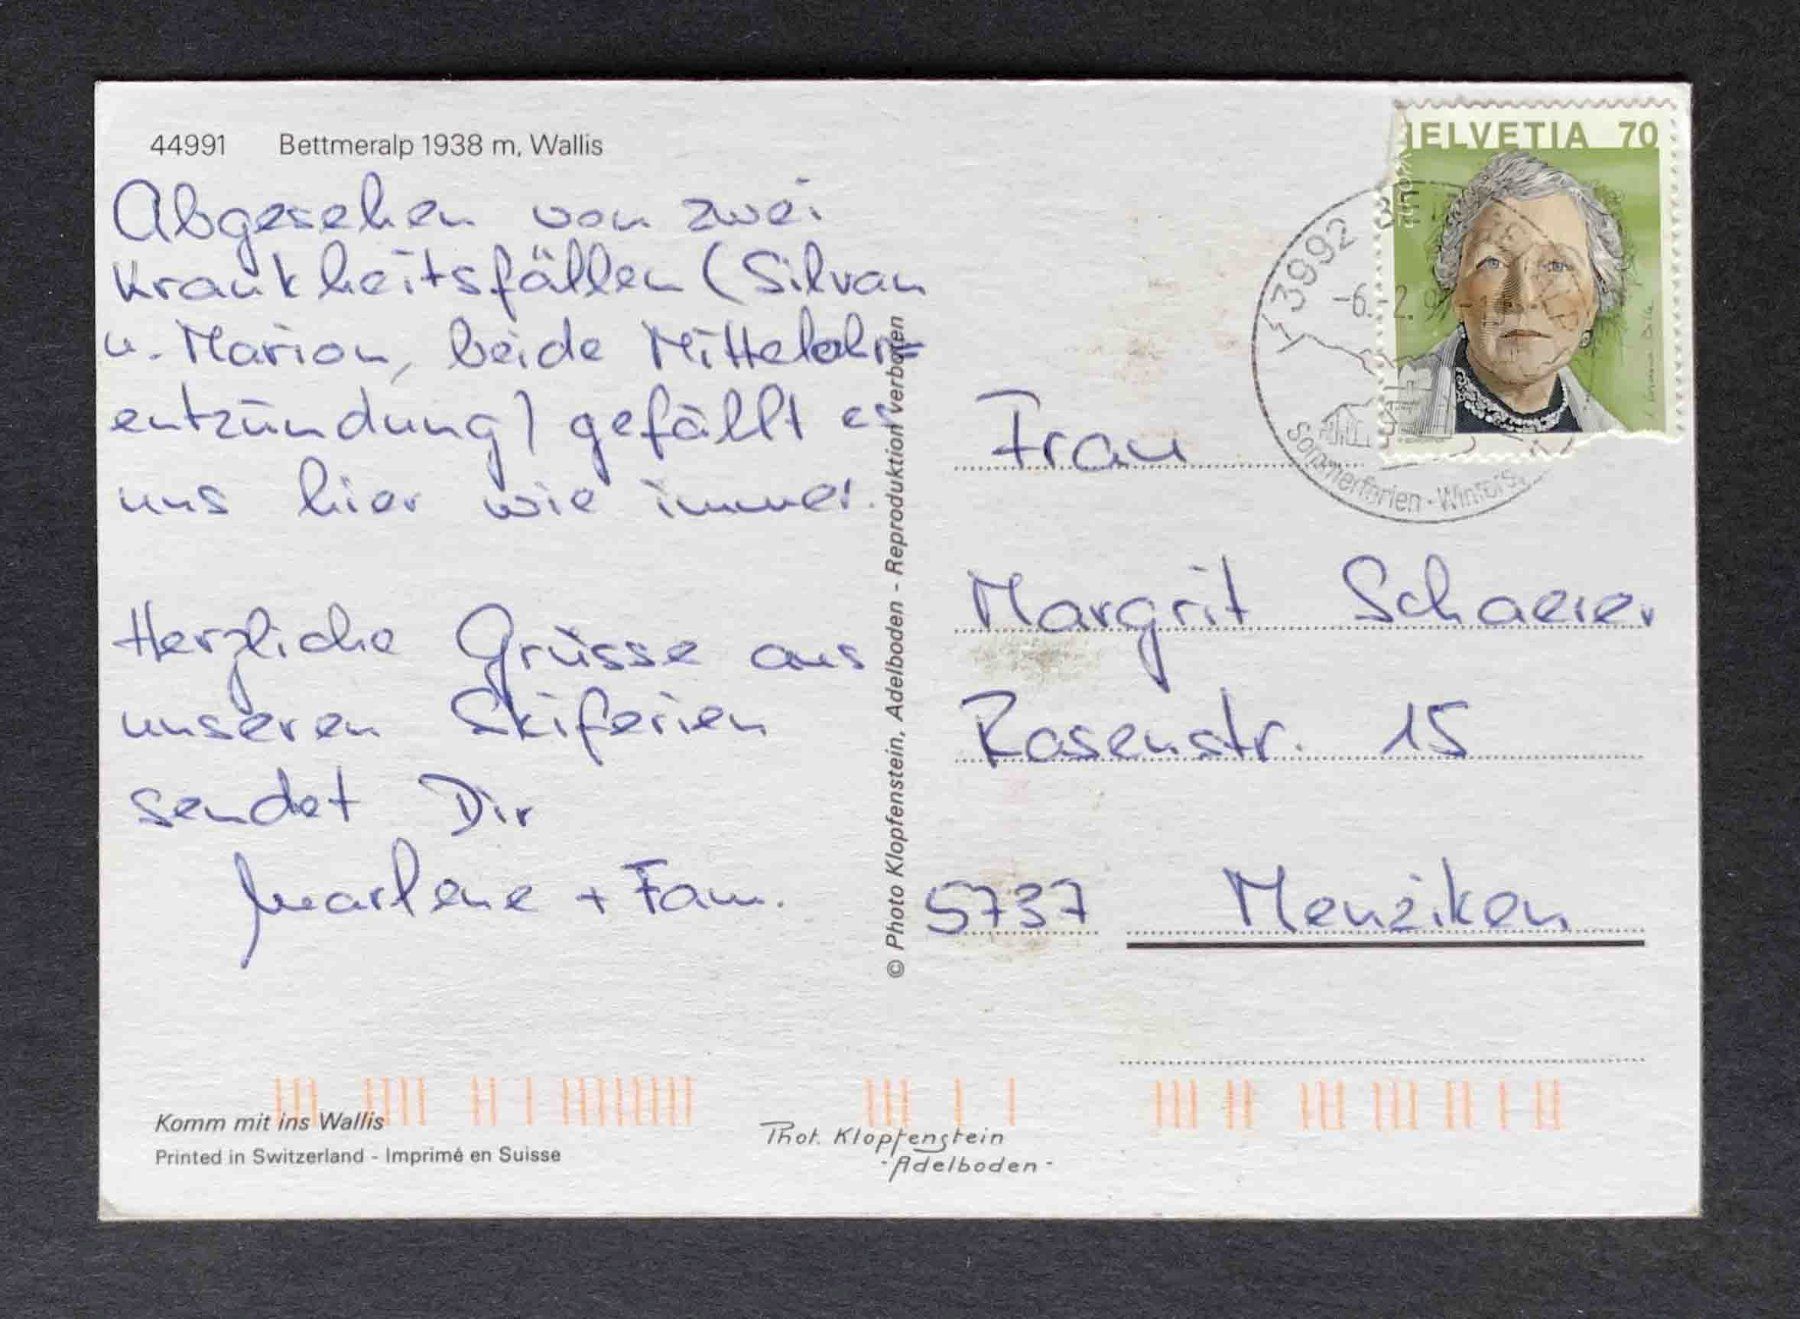 44991 Bettmeralp 1938 m, Wallis
Abgesehen von zwei
Krankheitsfällen (Silvan
u. Marion, beide Mittelohr=
entzündung) gefällt es
uns hier wie immer.
Herzliche Grüsse aus
unseren Skiferien
sendet Dir
Marlene + Fam.
Komm mit ins Wallis
Printed in Switzerland - Imprimé en Suisse
© Photo Klopfenstein, Adelboden - Reproduktion verboten
Phot. Klopfenstein
-Adelboden-
HELVETIA 70
3992
-6.-2.9
Sommerferien - Winters
Frau
Margrit Schaerer
Rosenstr. 15
5737 Menziken